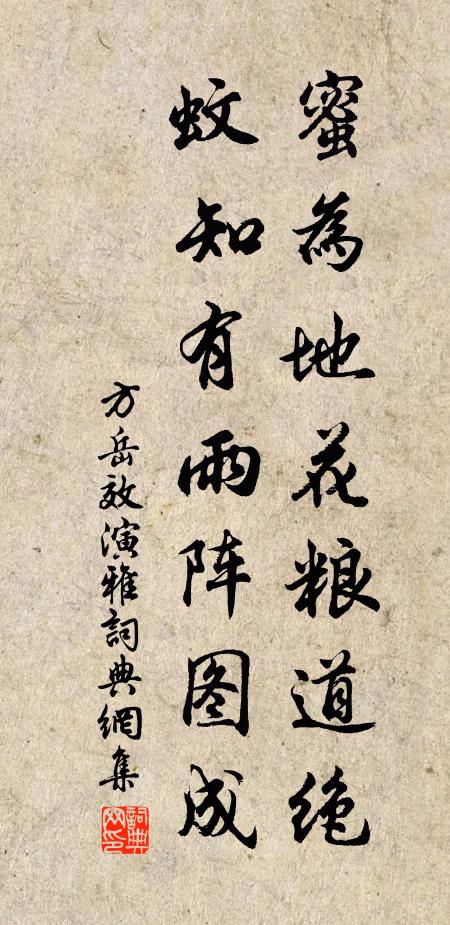 蜜為地花粮道绝
蚊知有雨阵图成
方岳效演雅詞典網集
詞典
网印